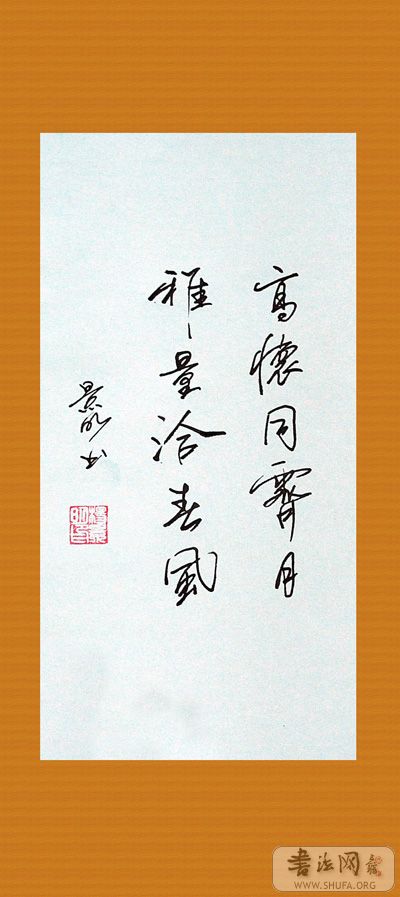 高懷同霽月
雅量洽春風
景明书
書法网
WWW.SHUFA.ORG